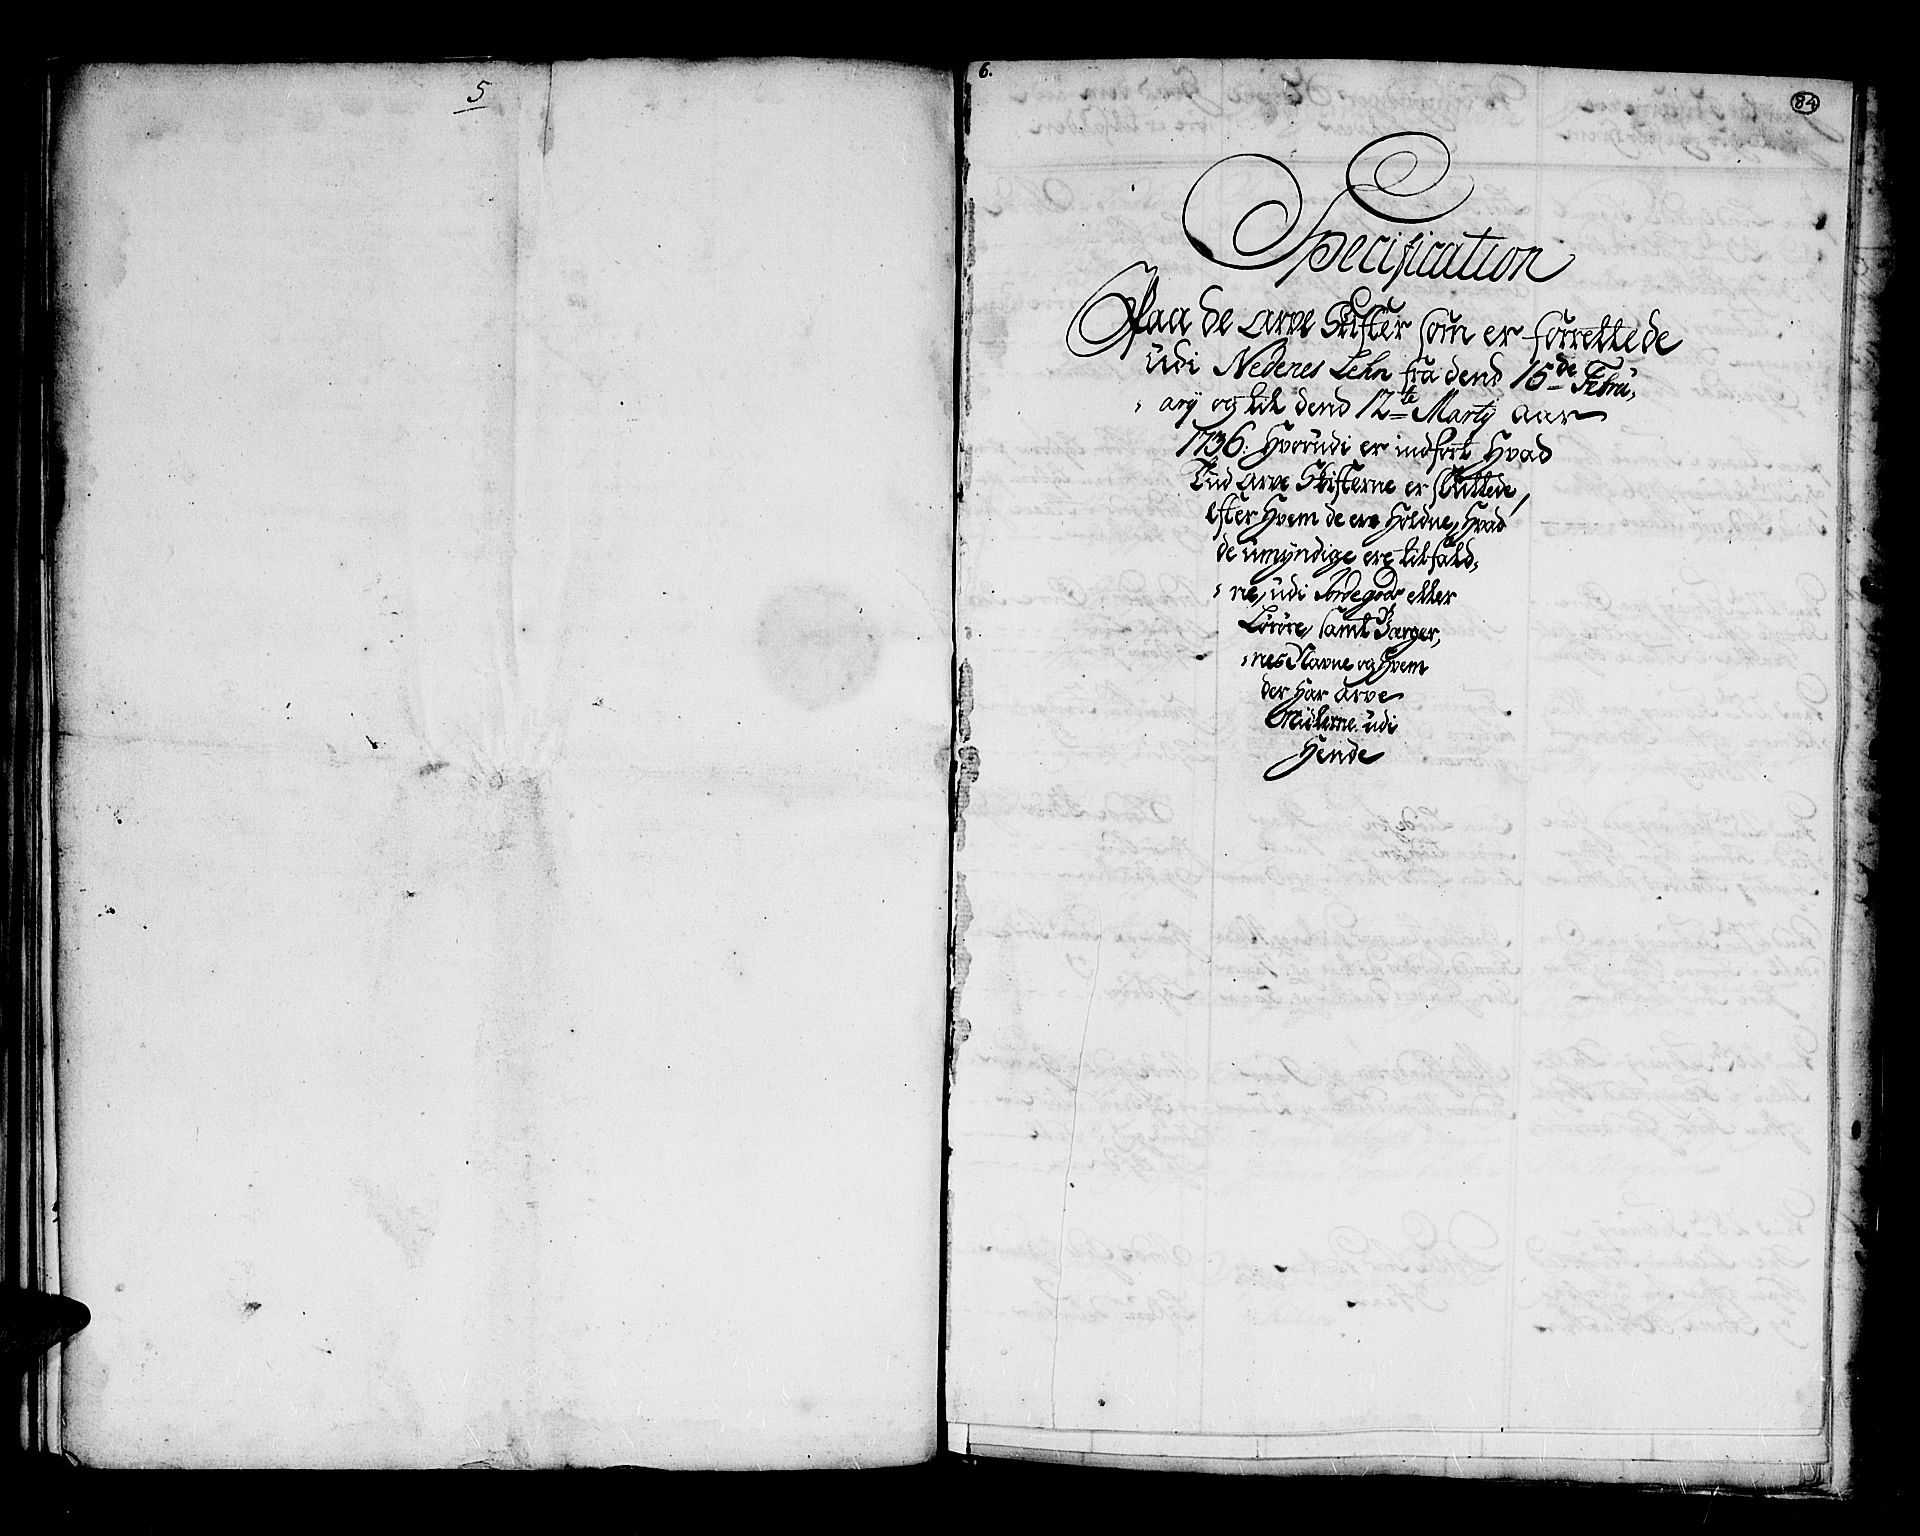 5
6.
84
Specification
Paa de arve Skifter som er forrettede
udi Nedenes Lehn fra dend 15de Febru,
, arÿ og til dend 12te Martÿ aar
1736. Hvorudi er indført Hvad
Tüd arve Skifterne er sluttede,
efter Hvem de ere Holdne, Hvad
de umÿndige ere tilfald,
, ne, udi Jordegods eller
Løsøre, samt Værger,
, nes Navne og Hvem
der Har arve
Midlerne udi
Hende